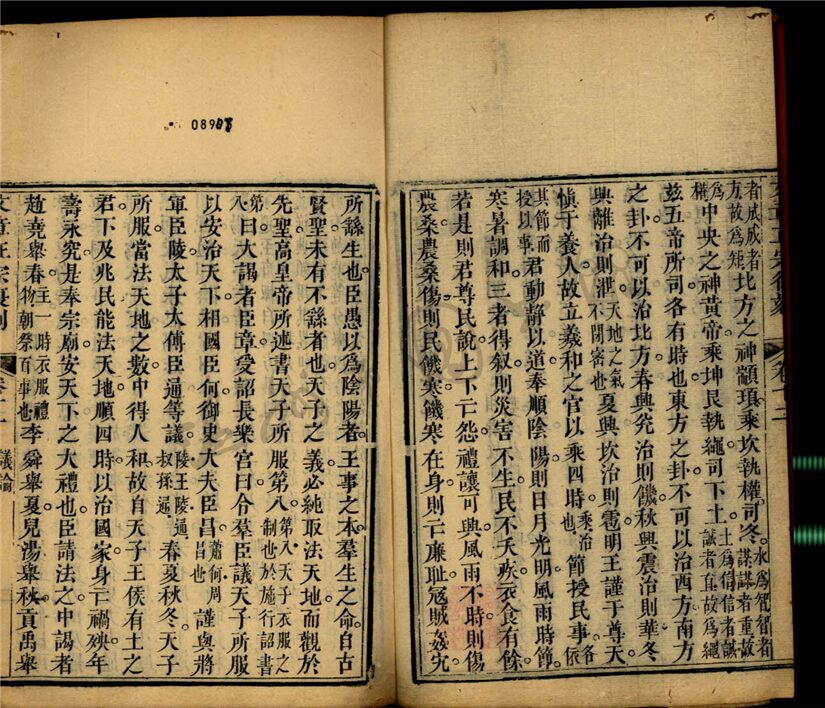 者成成者方故爲矩北方之神顓頊乘坎執權司冬水爲智智者謀謀者重故
爲權中央之神黃帝乘坤艮執繩司下土土爲信信者誠誠者直故爲繩
茲五帝所司各有時也東方之卦不可以治西方南方
之卦不可以治北方春興兌治則饑秋興震治則華冬
興離治則泄天地之氣不閉密也夏興坎治則雹明王謹于尊天
愼于養人故立羲和之官以乘四時乘治也節授民事各依
其節而授以事君動靜以道奉順陰陽則日月光明風雨時節
寒暑調和三者得叙則災害不生民不夭疾衣食有餘
若是則君尊民說上下亡怨禮讓可興風雨不時則傷
農桑農桑傷則民饑寒饑寒在身則亡廉耻寇賊姦宄
08908
所繇生也臣愚以爲陰陽者王事之本羣生之命自古
賢聖未有不繇者也天子之義必純取法天地而觀於
先聖高皇帝所述書天子所服第八第八天子衣服之制也於施行詔書
第八曰大謁者臣章受詔長樂宮曰令羣臣議天子所服
以安治天下相國臣何御史大夫臣昌蕭何周昌也謹與將
軍臣陵太子太傅臣通等議陵王陵通叔孫通春夏秋冬天子
所服當法天地之數中得人和故自天子王侯有土之
君下及兆民能法天地順四時以治國家身亡禍殃年
壽永究是奉宗廟安天下之大禮也臣請法之中謁者
趙堯舉春主一時衣服禮物朝祭百事也李舜舉夏兒湯舉秋貢禹舉
議論